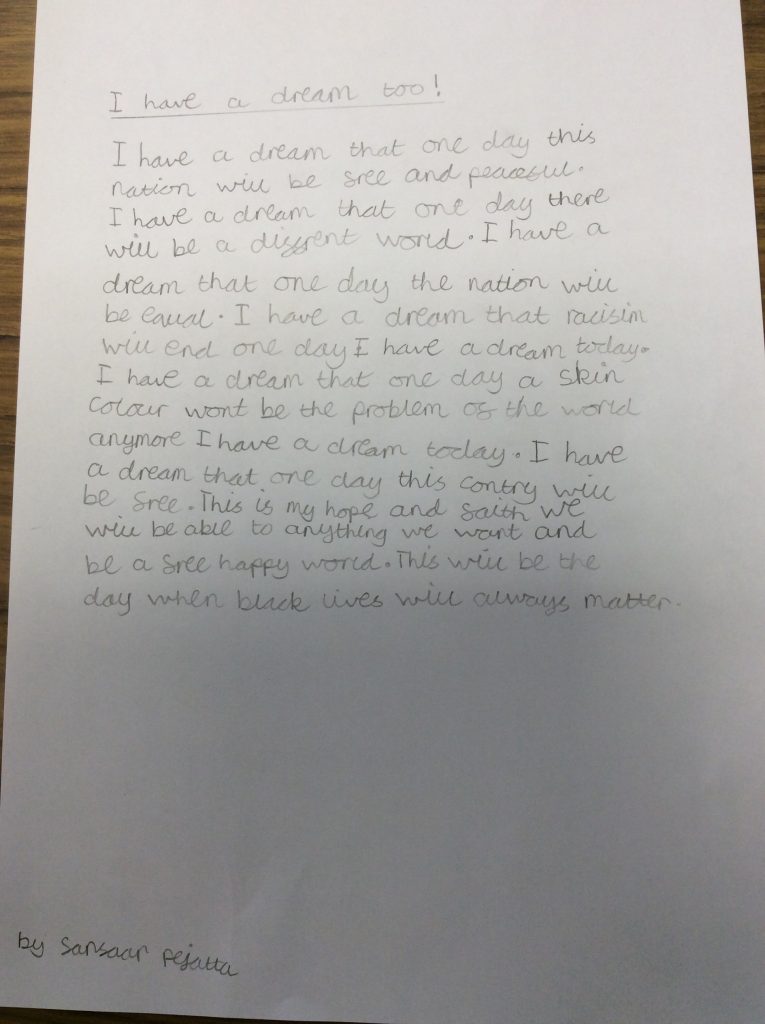 I have a dream too!
I have a dream that one day this
nation will be free and peaceful.
I have a dream that one day there
will be a diffrent world. I have a
dream that one day the nation will
be equal. I have a dream that racisim
will end one day I have a dream today.
I have a dream that one day a skin
colour wont be the problem of the world
anymore I have a dream today. I have
a dream that one day this contry will
be free. This is my hope and faith we
will be able to anything we want and
be a free happy world. This will be the
day when black lives will always matter.
by Sansaar Pejatta